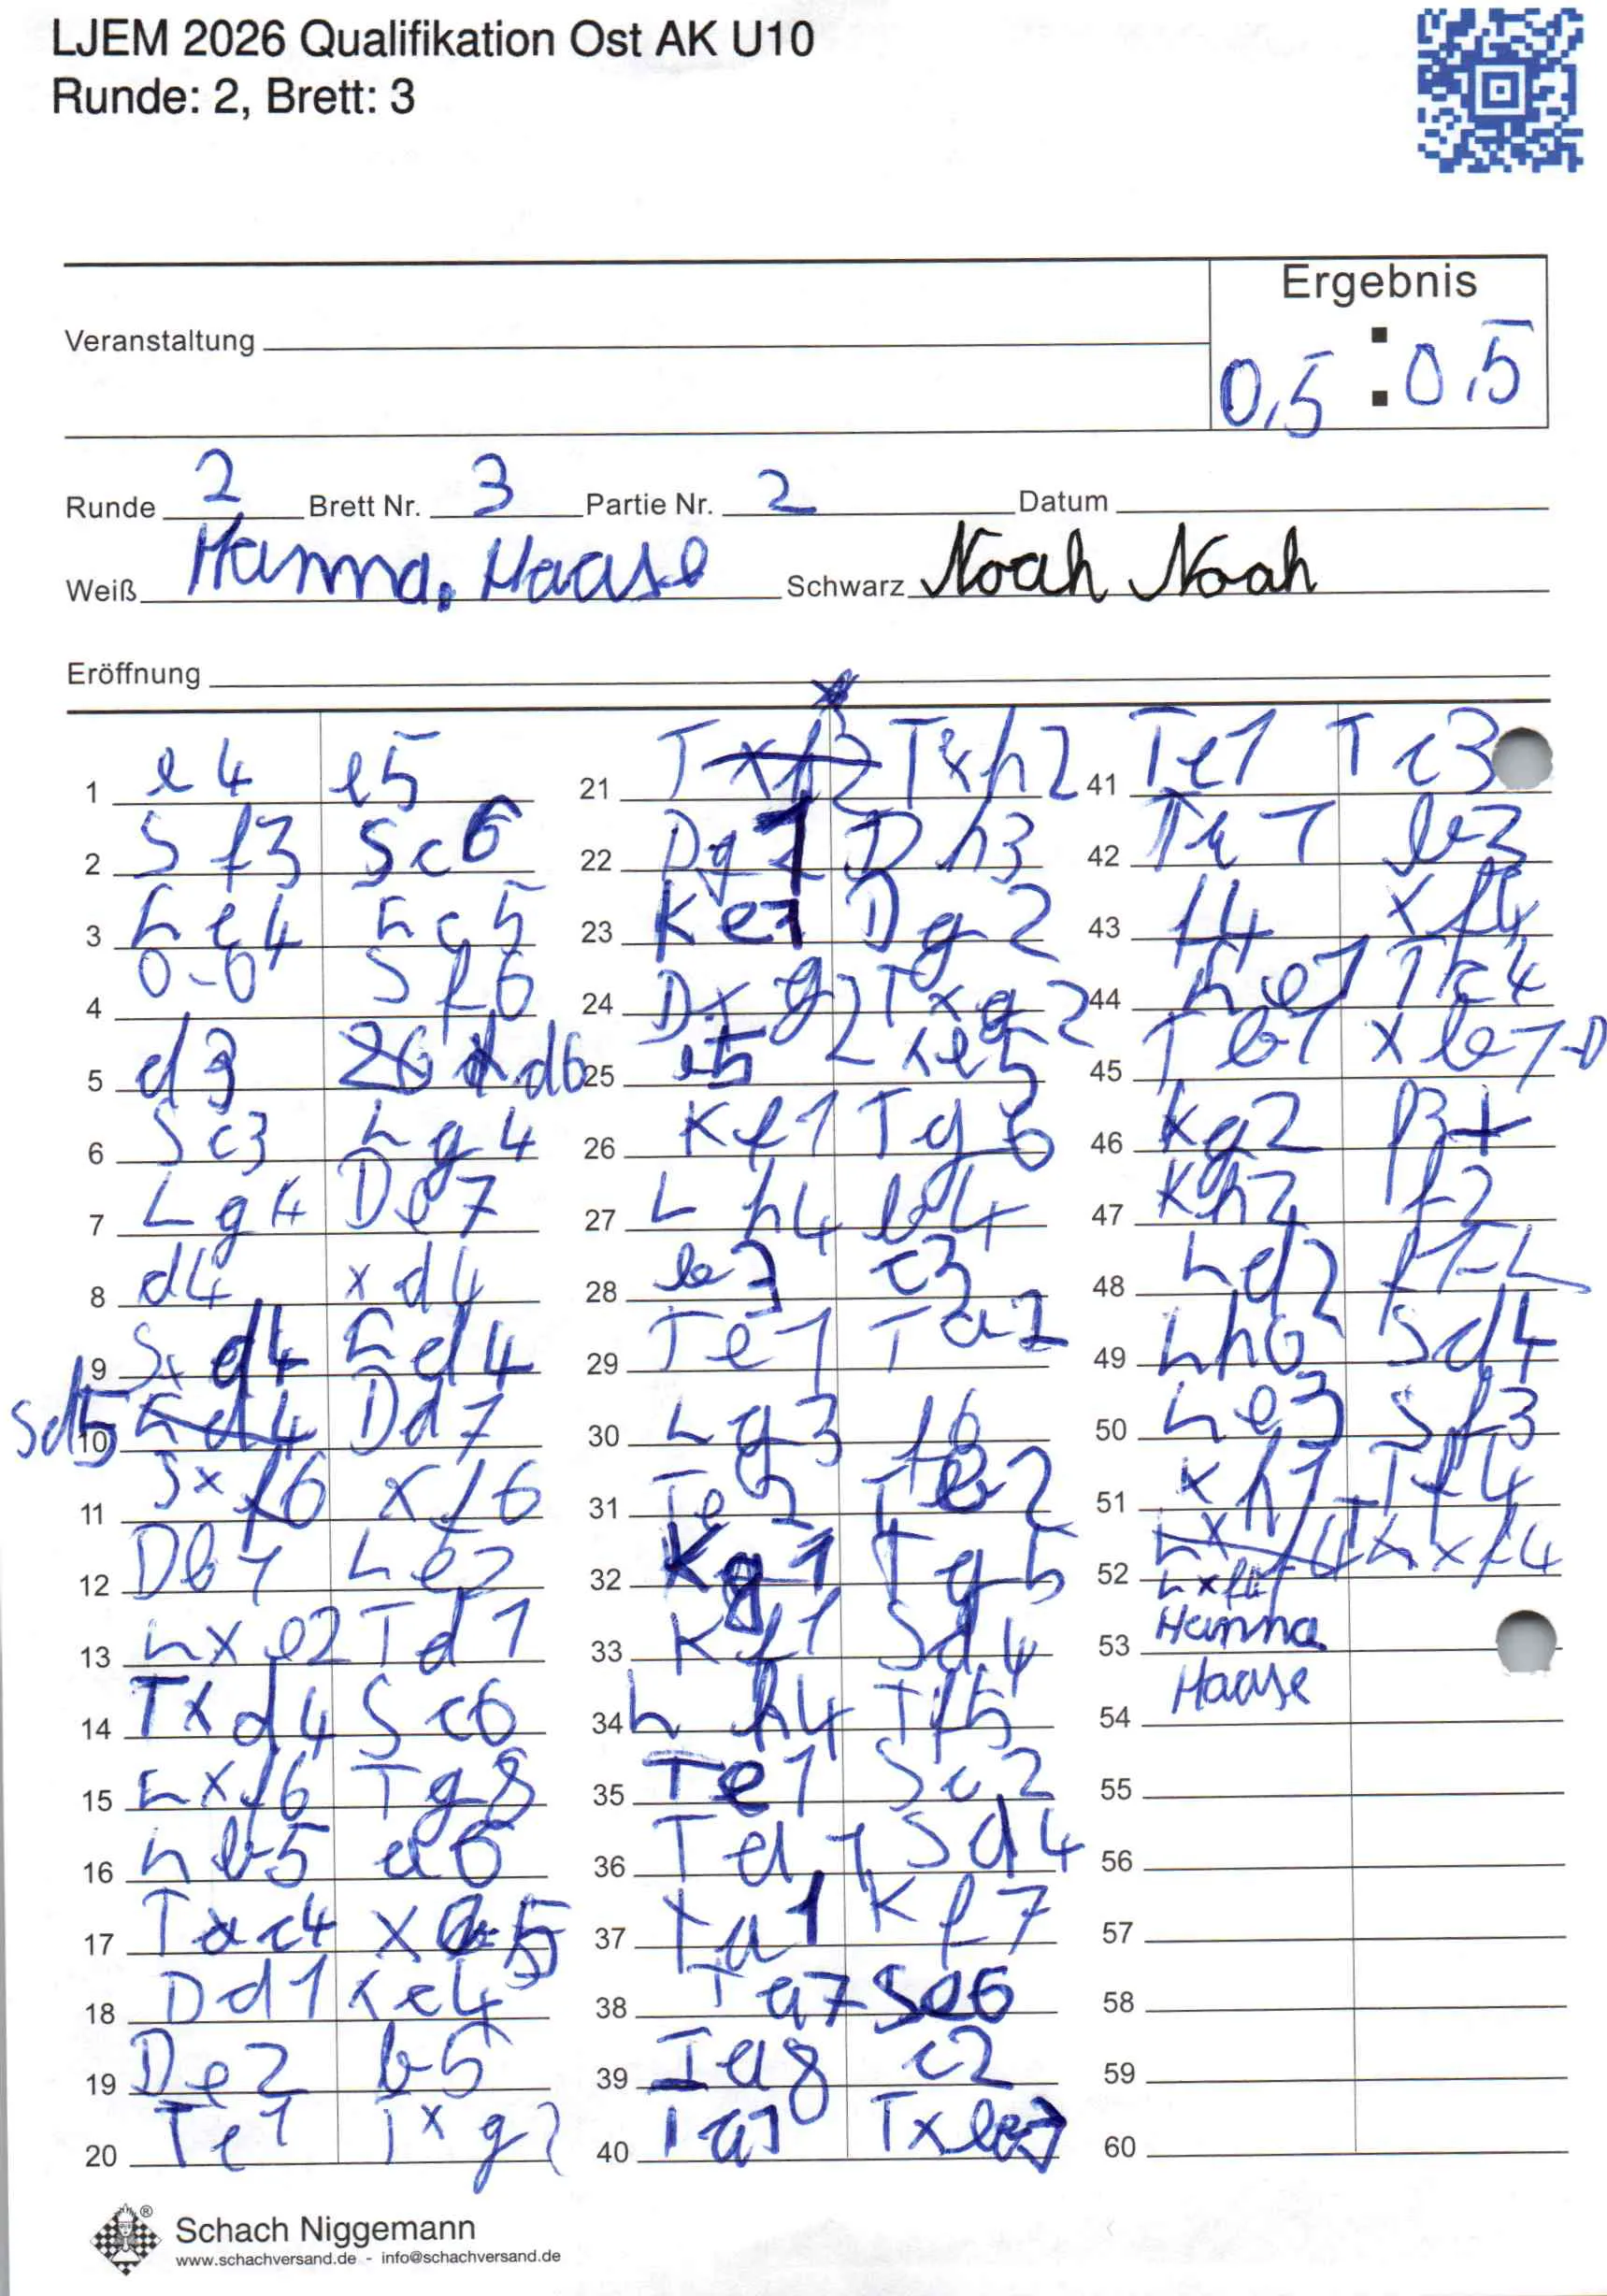 LJEM 2026 Qualifikation Ost AK U10
Runde: 2, Brett: 3
Ergebnis
Veranstaltung
0,5 : 0,5
Runde 2 Brett Nr. 3 Partie Nr. 2 Datum
Weiß Hanna Haase Schwarz Noah Noah
Eröffnung
1 e4 e5
2 Sf3 Sc6
3 Lc4 Lc5
4 0-0 Sf6
5 d3 d6
6 Sc3 Lg4
7 Lg4 De7
8 d4 xd4
9 Sxd4 Ld4
10 Sd5 Dd7
11 Sxf6 xf6
12 Le2
13 Lxe2 Td1
14 Txd4 Sc6
15 Lxf6 Tg8
16 Lb5 a6
17 Txc4 xb5
18 Dd1 xc4
19 De2 b5
20 Te1 Txg2
21 Txh2
22 Dg1 Dh3
23 Ke1 Dg2
24 Dxg2 Txg2
25 e5 xe5
26 Kf1 Tg6
27 Lh4 b4
28 b3 c3
29 Te1 Ta2
30 Lg3 f6
31 Te2 Tb2
32 Kg1 Tg5
33 Kf1 Sd4
34 Lh4 Tf5
35 Te1 Sc2
36 Td1 Sd4
37 Ta1 Kf7
38 Ta7 Se6
39 Ta8 c2
40 Ta1 Txb3
41 Te1 Tc3
42 b3
43 f4 xf4
44 Le1 Tc4
45 Tb1 xb1-D
46 Kg2 f3+
47 Kh2 f2
48 Ld2 f1-L
49 Lh6 Sd4
50 Le3 Sf3
51 xh1 Tf4
52 Lxf4 Lxf4
53 Hanna
54 Haase
55
56
57
58
59
60
Schach Niggemann
www.schachversand.de - info@schachversand.de